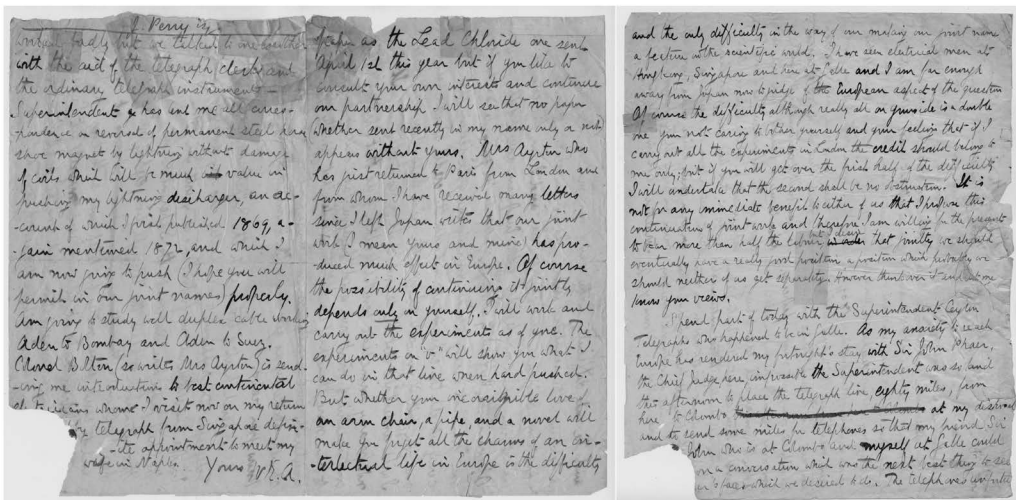 J. Perry is
worked badly but we talked to one another
with the aid of the telegraph clerks and
the ordinary telegraph instruments.
Superintendent has sent me all corres-
pondence on reversal of permanent steel horse
shoe magnet by lightning without damage
of coils which will be much value in
pushing my lightning discharger, an ac-
-count of which I first published 1869, a-
-gain mentioned 1872, and which I
am now going to push (I hope you will
permit in our joint names) properly.
Am going to study well duplex cable working
Aden to Bombay and Aden to Suez.
Colonel Bolton (so writes Mrs Ayrton) is send-
-ing me introductions to best continental
whom I visit now on my return
by telegraph from Singapore defin-
-ite appointment to meet my
wife in Naples.
Yours W.E.A.
paper as the Lead Chloride one sent
April 12th this year but if you like to
consult your own interests and continue
our partnership I will see that no paper
whether sent recently in my name only or not
appears without yours. Mrs Ayrton who
has just returned to Paris from London and
from whom I have received many letters
since I left Japan writes that our joint
work (I mean yours and mine) has pro-
-duced much effect in Europe. Of course
the possibility of continuing it jointly
depends only on yourself. I will work and
carry out the experiments as of yore. The
experiments on "v" will show you what I
can do in that line when hard pushed.
But whether your love of
an arm chair, a pipe, and a novel will
make you forget all the charms of an in-
-tellectual life in Europe is the difficulty
and the only difficulty in the way of our making our joint name
a feature in the scientific world. I have seen electrical men at
Hong Kong, Singapore and here at Galle and I am far enough
away from Japan now to judge of the European aspect of the question
Of course the difficulty although really all on your side is a double
one your not caring to bother yourself and your feeling that if I
carry out all the experiments in London the credit should belong to
me only; but if you will get over the first half of the difficulty
I will undertake that the second shall be no obstruction. It is
not for any immediate benefit to either of us that I propose this
continuation of joint work and therefore I am willing for the present
to bear more than half the labour but that jointly we should
eventually have a really good position a position which probably we
should neither of us get separately. However think over it and let me
know your views.
Spend part of today with the Superintendent Ceylon
Telegraphs who happened to be in Galle. As my anxiety to reach
Europe has rendered my fortnight's stay with Sir John Phear,
the Chief Judge here, impossible the Superintendent was so kind
this afternoon to place the telegraph line, eighty miles, from
here to Colombo at my disposal
and to send some miles for telephones so that my friend Sir
John who is at Colombo and myself at Galle could
on a conversation which was the next best thing to see
face which we desired to do. The telephones